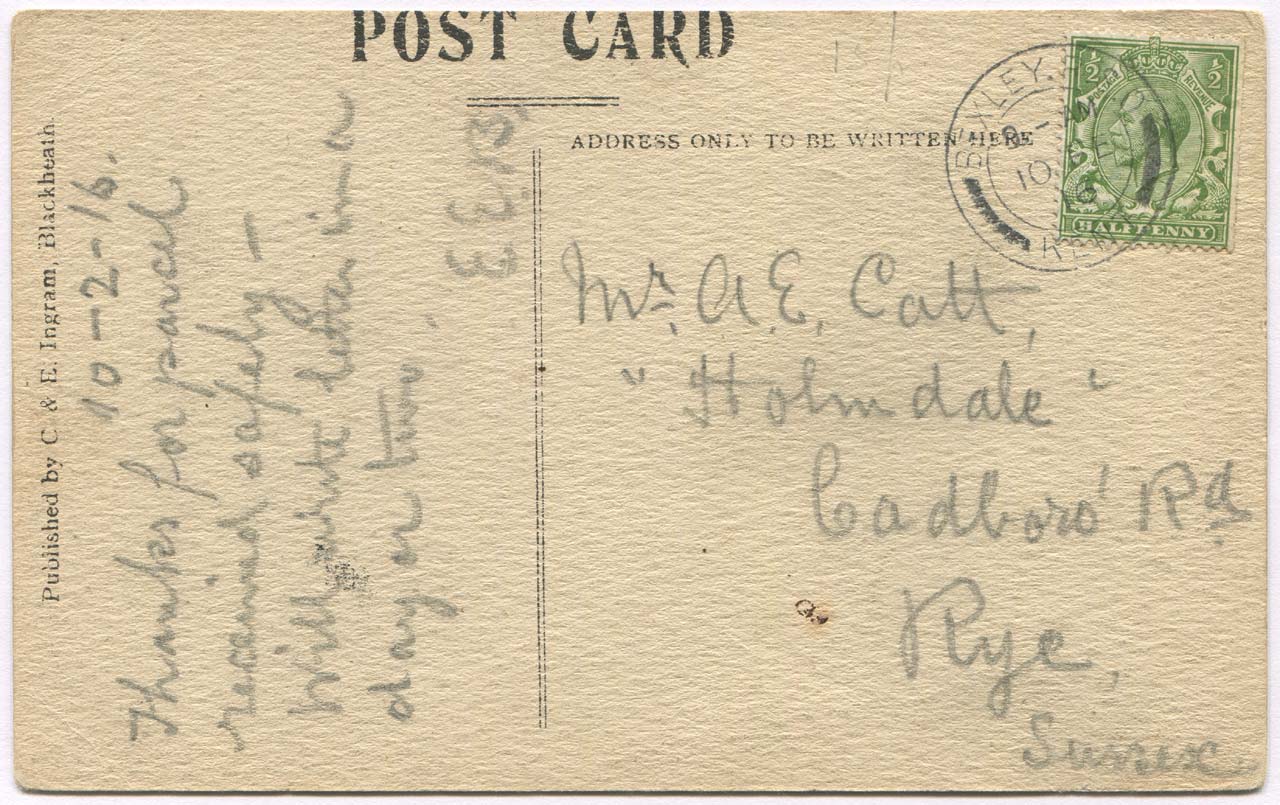 POST CARD
ADDRESS ONLY TO BE WRITTEN HERE
Published by C. & E. Ingram, Blackheath.
10-2-16.
Thanks for parcel
received safely –
Will write letter in a
day or two.
Mr. A. E. Catt,
"Holmdale"
Cadboro' Rd
Rye,
Sussex
½ ½
POSTAGE REVENUE
HALFPENNY
BEXLEY
AM
10 FE
16
KENT